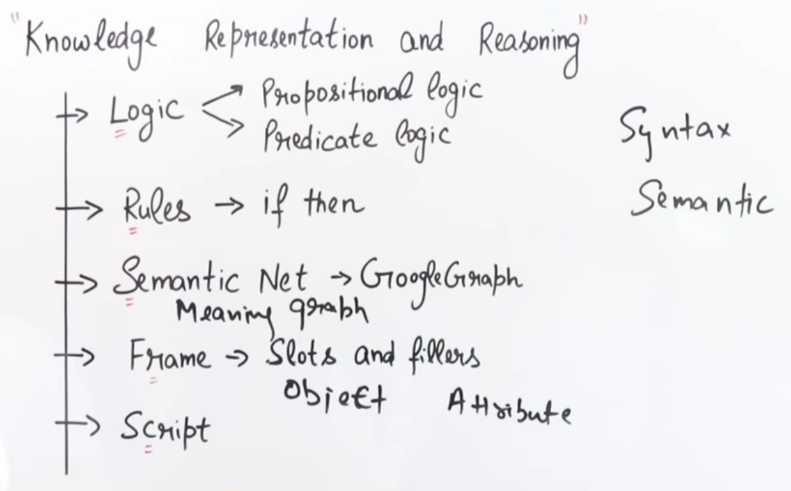 "Knowledge Representation and Reasoning"
→ Logic
Propositional logic
Predicate logic
Syntax
→ Rules → if then
Semantic
→ Semantic Net → GoogleGraph
Meaning graph
→ Frame → Slots and fillers
Object Attribute
→ Script